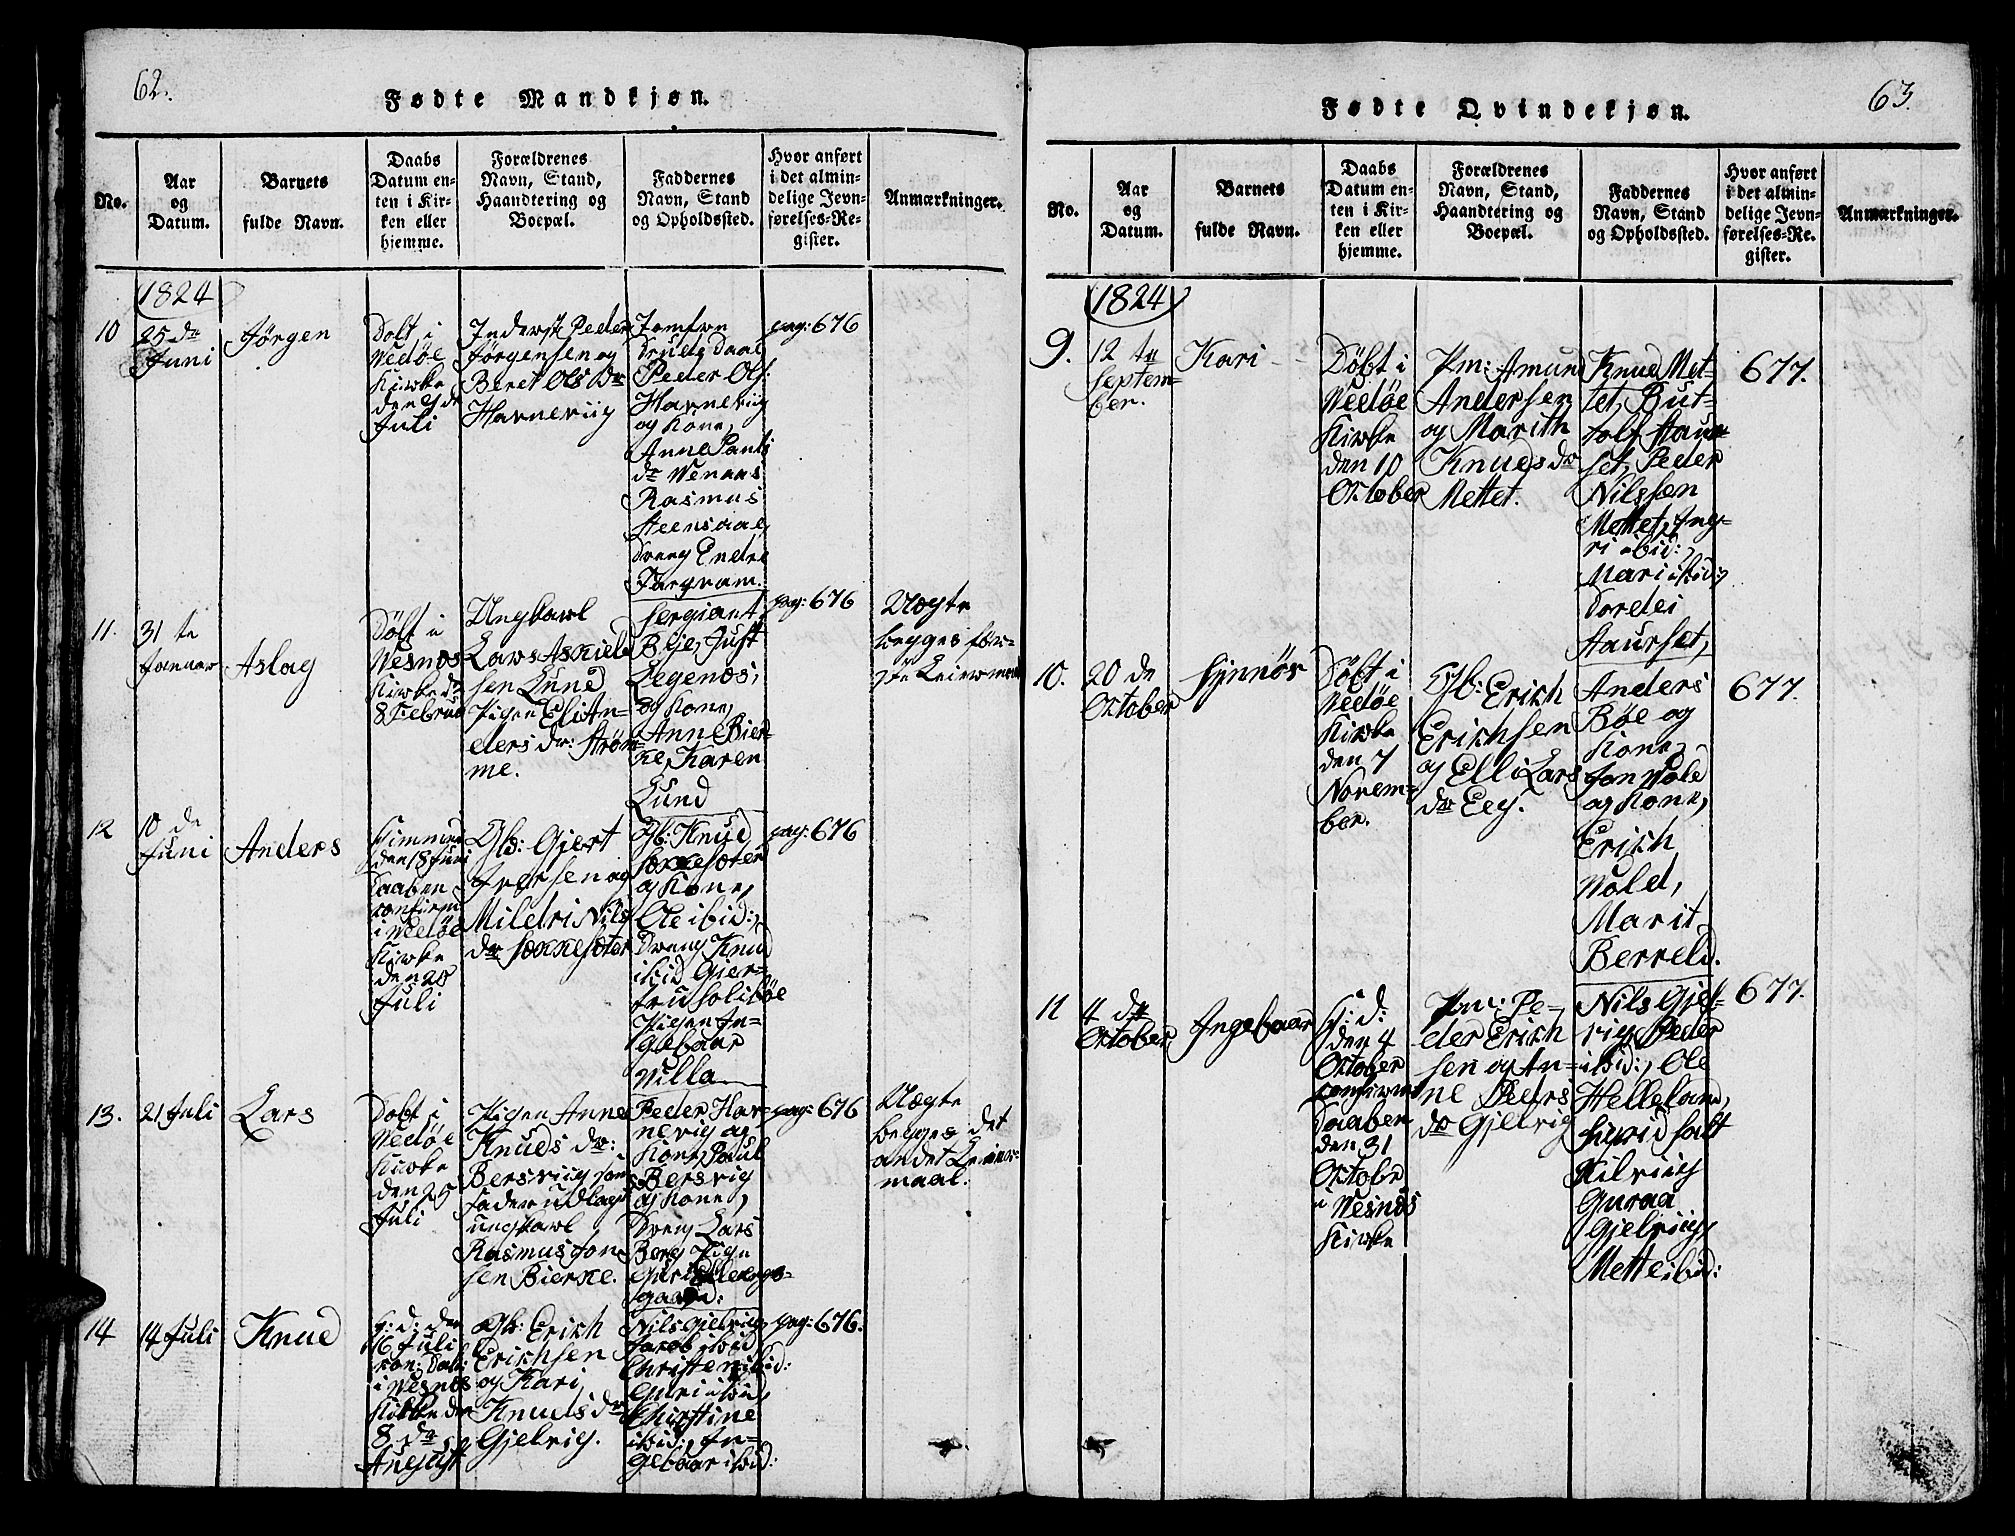 62.
Fødte Mandkjøn.
No.
Aar
og
Datum.
Barnets
fulde Navn.
Daabs
Datum en-
ten i Kir-
ken eller
hjemme.
Forældrenes
Navn, Stand,
Haandtering og
Boepæl.
Faddernes
Navn, Stand
og Opholdssted.
Hvor anført
i det almin-
delige Jevn-
førelses-Re-
gister.
Anmærkninger.
1824
10
25 de
Juni
Jørgen
Døbt i
Wedøe
Kirke
den
Juli
Inderst Peder
Jørgensen og
Beret Ols Dr
Harneviig
Jomfru
Daal
Peder Ols:
Harneviig
og Kone,
Anne Pauls
dr Wenaas
Rasmus
Steensaae,
Dreng Endre
pag: 676
11.
31 te
Januar
Aslag
Døbt i
Wesnæs
Kirke d:
8 Februa
Ungkarl
Lars Askield
sen Lund
Pigen Eli An-
ders dr: Strøm-
me.
Sergiant
Bye, Just
Legenæs,
og Kone,
Anne Bier-
ke, Karen
Lund
pag: 676
Uægte
begges før-
ste Leiermaal
12
10 de
Juni
Anders
Himmed
den 18 Juni
Daaben
confirm
i Wedøe
Kirke
den 28
Juli
Gb: Gjert
Iversen og
Mildri Nils
dr Sæckesæter
Gb: Knud
Sæckesæter
og Kone,
Ole ibid:,
Dreng Knud
ibid Gjer-
tru Solibøe
Pigen In-
gebaar
Villa
pag: 676
13.
21 Juli
Lars
Døbt i
Wedøe
Kirke
den 25
Juli
Pigen Anne
Knuds dr:
Bersviig som
fader udlagt
ungkarl
Rasmus Jon-
sen Bierke.
Peder Har-
nevig og
Kone, Paul
Bersvig
og Kone,
Dreng Lars
Berg Pige
Guri
gaard:
pag: 676
Uægte
begges det
andet Leier-
maal.
14
14 Juli
Knud
h: d: den
16 Juli
con: Dab:
i Wesnæs
Kirke den
8 de
August
Gb: Erich
Erichsen
og Kari
Knuds dr
Gjelvig.
Nils Gjelvig,
Jacob ibid
Christen ibid:
Guri ibid,
Christine
ibid:, In-
gebaar ibid:
pag: 676.
63.
Fødte Qvindekjøn.
No.
Aar
og
Datum.
Barnets
fulde Navn.
Daabs
Datum en-
ten i Kir-
ken eller
hjemme.
Forældrenes
Navn, Stand,
Haandtering og
Boepæl.
Faddernes
Navn, Stand
og Opholdssted.
Hvor anført
i det almin-
delige Jevn-
førelses-Re-
gister.
Anmærkninger.
1824
9.
12 te
Septem-
ber.
Kari
Døbt i
Wedøe
Kirke
den 10
October
Pm: Amun
Andersen
og Marith
Knuds dr
Mettet.
Knud Met-
tet, But-
tolf Staur-
set, Peder
Nilssen
Mettet, Ing-
ri ibid:,
Mari ibid:,
Dordei
Staurset,
677.
10.
20 de
October
Synnöv
Döbt i
Wedøe
Kirke
den 7
Novem-
ber.
Gb: Erich
Erichsen
og Elli Lars
dr Eeg.
Anders
Bøe og
Kone,
Jon Wold
og Kone,
Erich
Wold,
Marit
Berreld.
677.
11
4 de
October
Ingebaar
h: d:
den 4
October
confirmert
Daaben
den 31
Octobr
i Wesnæs
Kirke
Pm: Pe-
der Erich
sen og An-
ne Peders
dr Gjelvig
Nils Gjel-
vig, Peder
ibid:, Ole
Helleland,
Sigrid Salt
Guroa
Gjelviig,
Mette ibid:
677.